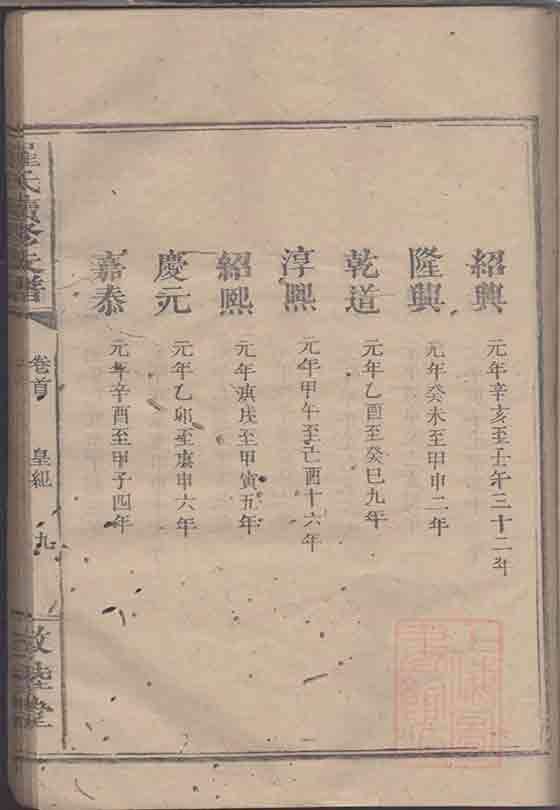 紹興
元年辛亥至壬午三十二年
隆興
元年癸未至甲申二年
乾道
元年乙酉至癸巳九年
淳熙
元年甲午至己酉十六年
紹熙
元年庚戌至甲寅五年
慶元
元年乙卯至庚申六年
嘉泰
元年辛酉至甲子四年
氏續修族譜
卷首
皇紀
九
敦睦堂